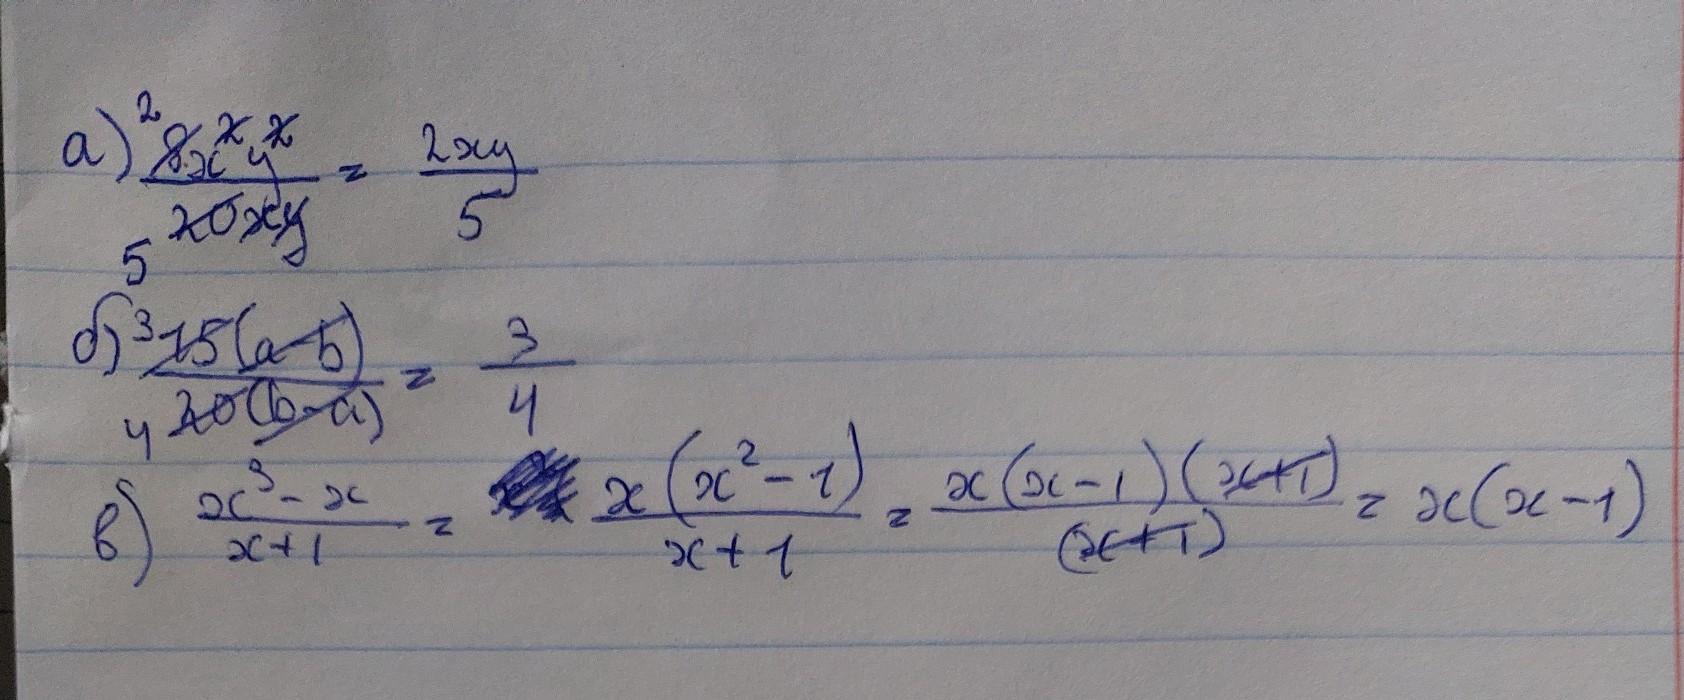 а) ²8x²y²/20xy₅ = 2xy/5
б) ³15(a-b)/₄20(b-a) = 3/4
в) x³-x/x+1 = x(x²-1)/x+1 = x(x-1)(x+1)/(x+1) = x(x-1)